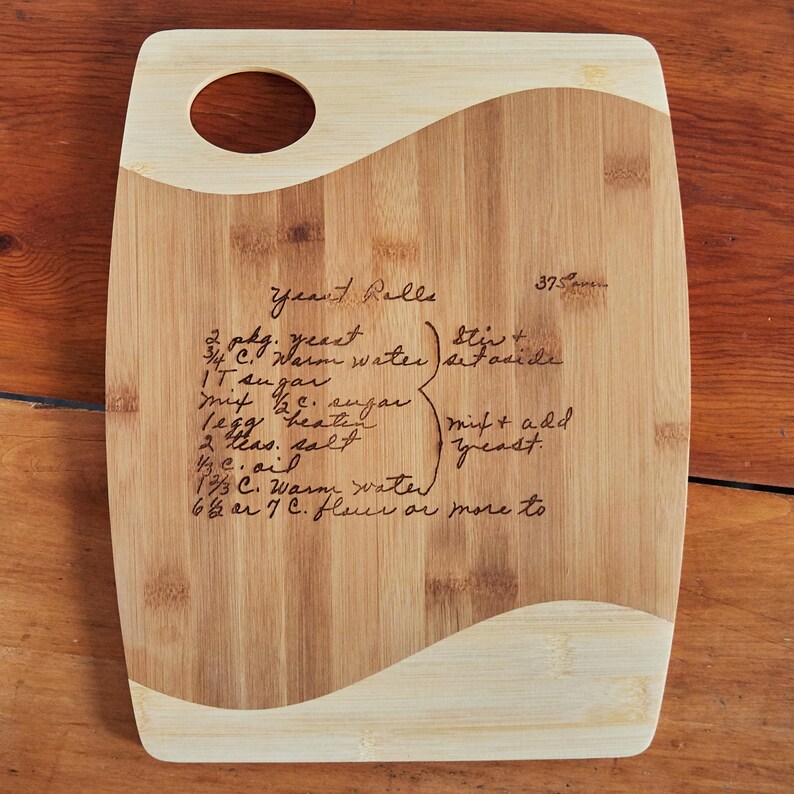 Yeast Rolls 375° oven
2 pkg. yeast
3/4 C. Warm water } Stir +
1 T sugar set aside
mix 1/2 c. sugar
1 egg beaten } mix + add
2 teas. salt yeast.
1/3 c. oil
1 2/3 C. Warm water
6 1/2 or 7 C. flour or more to